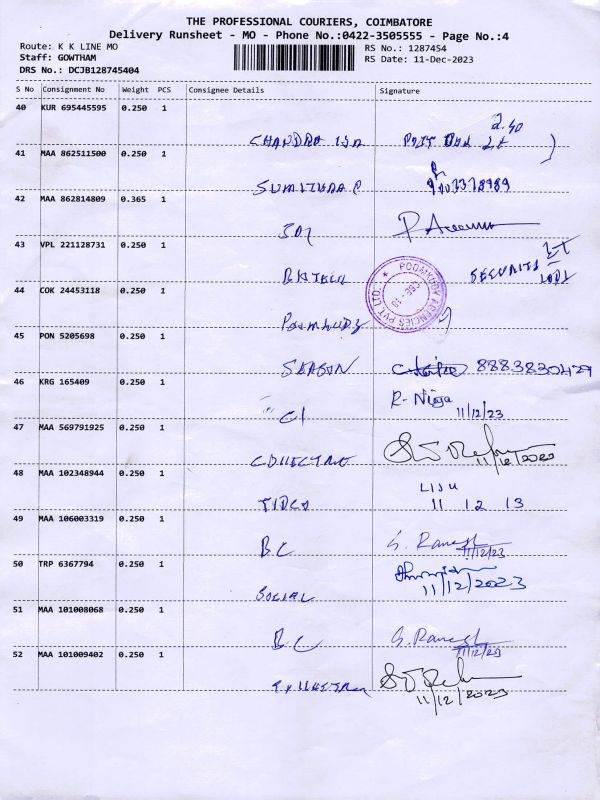 THE PROFESSIONAL COURIERS, COIMBATORE
Delivery Runsheet - MO - Phone No.:0422-3505555 - Page No.:4
Route: K K LINE MO
Staff: GOWTHAM
DRS No.: DCJB128745404
RS No.: 1287454
RS Date: 11-Dec-2023
S No Consignment No Weight PCS Consignee Details Signature
40 KUR 695445595 0.250 1
41 MAA 862511500 0.250 1
42 MAA 862814809 0.365 1
43 VPL 221128731 0.250 1
SECURITY
POOMKUDY AGENCIES PVT. LTD.
44 COK 24453118 0.250 1
45 PON 5205698 0.250 1
8883830429
46 KRG 165409 0.250 1
C1 R. Nioja
11/12/23
47 MAA 569791925 0.250 1
11/12/2023
48 MAA 102348944 0.250 1
TIDCO 11 12 13
49 MAA 106003319 0.250 1
B.C G. Ramesh
11/12/23
50 TRP 6367794 0.250 1
SOCIAL 11/12/2023
51 MAA 101008068 0.250 1
B.C G. Ramesh
11/12/23
52 MAA 101009402 0.250 1
11/12/2023